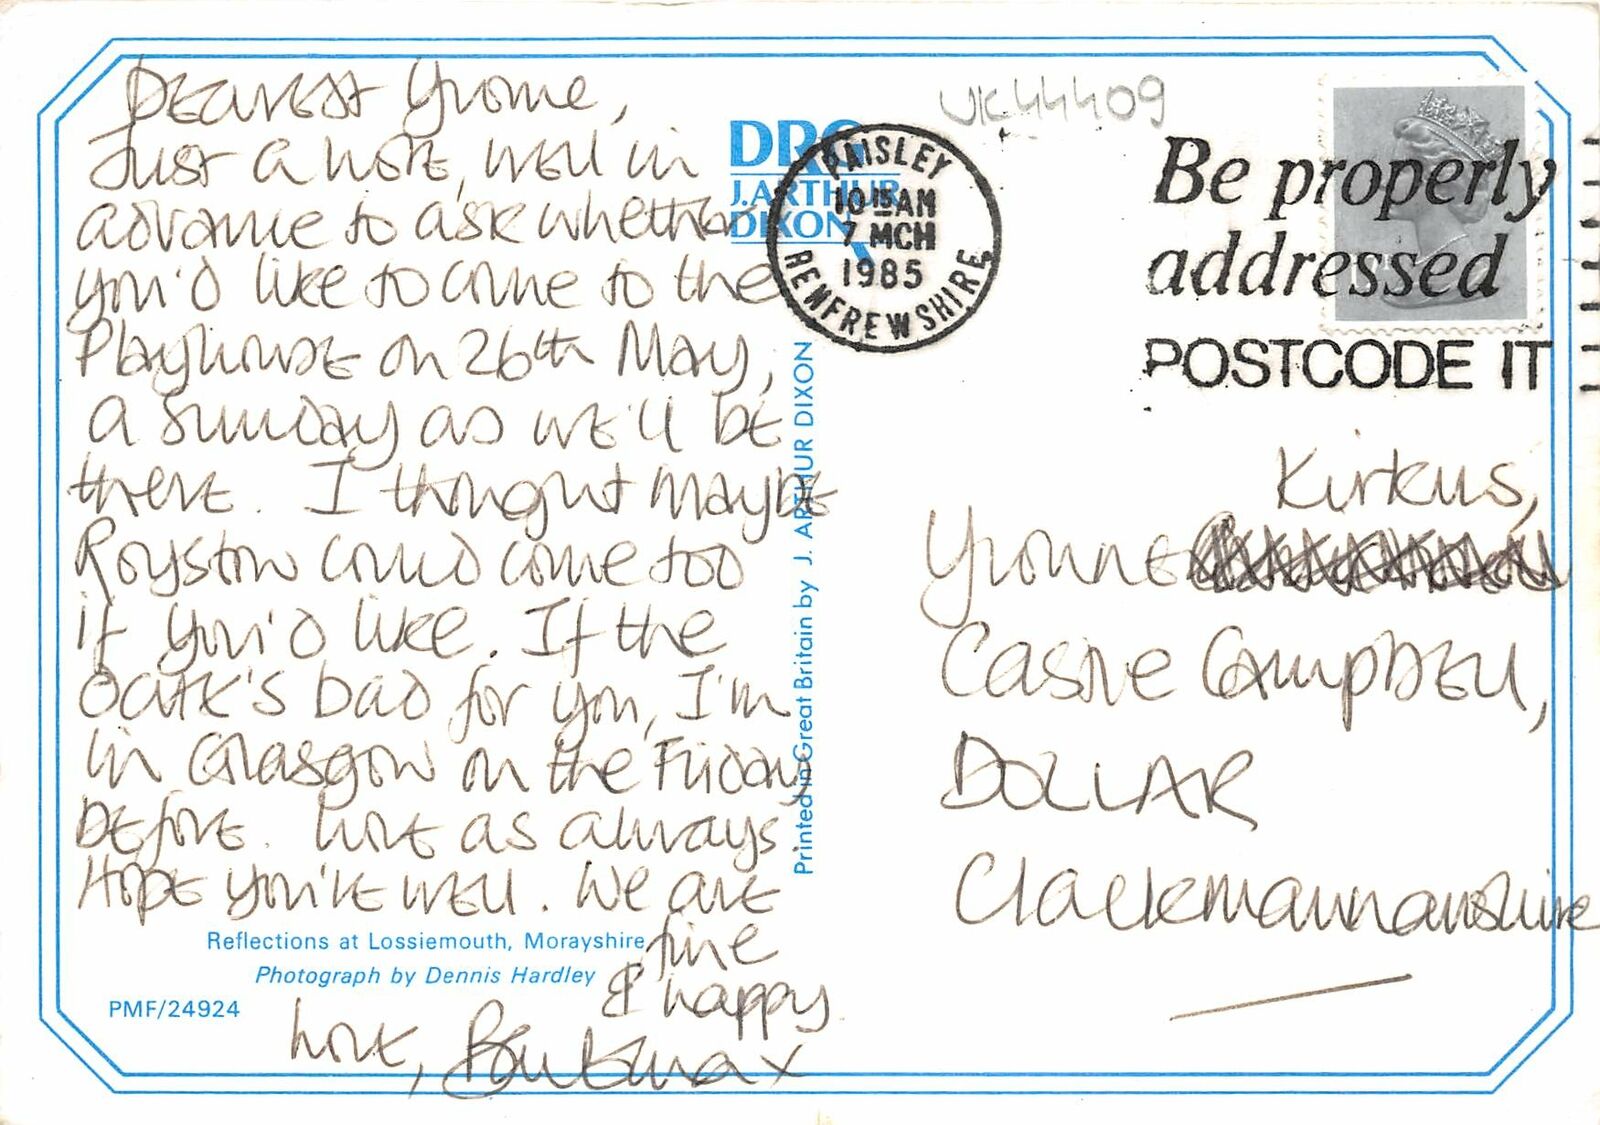 DEAREST Yvonne,
Just a note, well in
advance to ask whether
you'd like to come to the
Playhouse on 26th May,
a Sunday as we'll be
there. I thought maybe
Royston could come too
if you'd like. If the
date's bad for you, I'm
in Glasgow on the Friday
before. Love as always.
Hope you're well. We are
fine
& happy
Love,
x
Reflections at Lossiemouth, Morayshire
Photograph by Dennis Hardley
PMF/24924
DRG
J. ARTHUR
DIXON
Printed in Great Britain by J. ARTHUR DIXON
UK44409
PAISLEY
10 15 AM
7 MCH
1985
RENFREWSHIRE
Be properly
addressed
POSTCODE IT
Kirkus,
Yvonne
Castle Campbell,
DOLLAR
Clackmannanshire